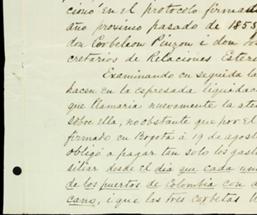 cisió en el protocolo firmado
año proximo pasado de 1853
don Corbeleon Pinzon i don
cretarios de Relaciones Esteri
Examinando en seguida la
hacen en la espresada liquidac
que llamaria nuevamente la aten
sobre ella, no obstante que por el
firmado en Bogotá á 19 de agosto
obligó a pagar tan solo los gasto
siliar desde el dia que cada una
de los puertos de Colombia con d
cano, i que las tres corbetas